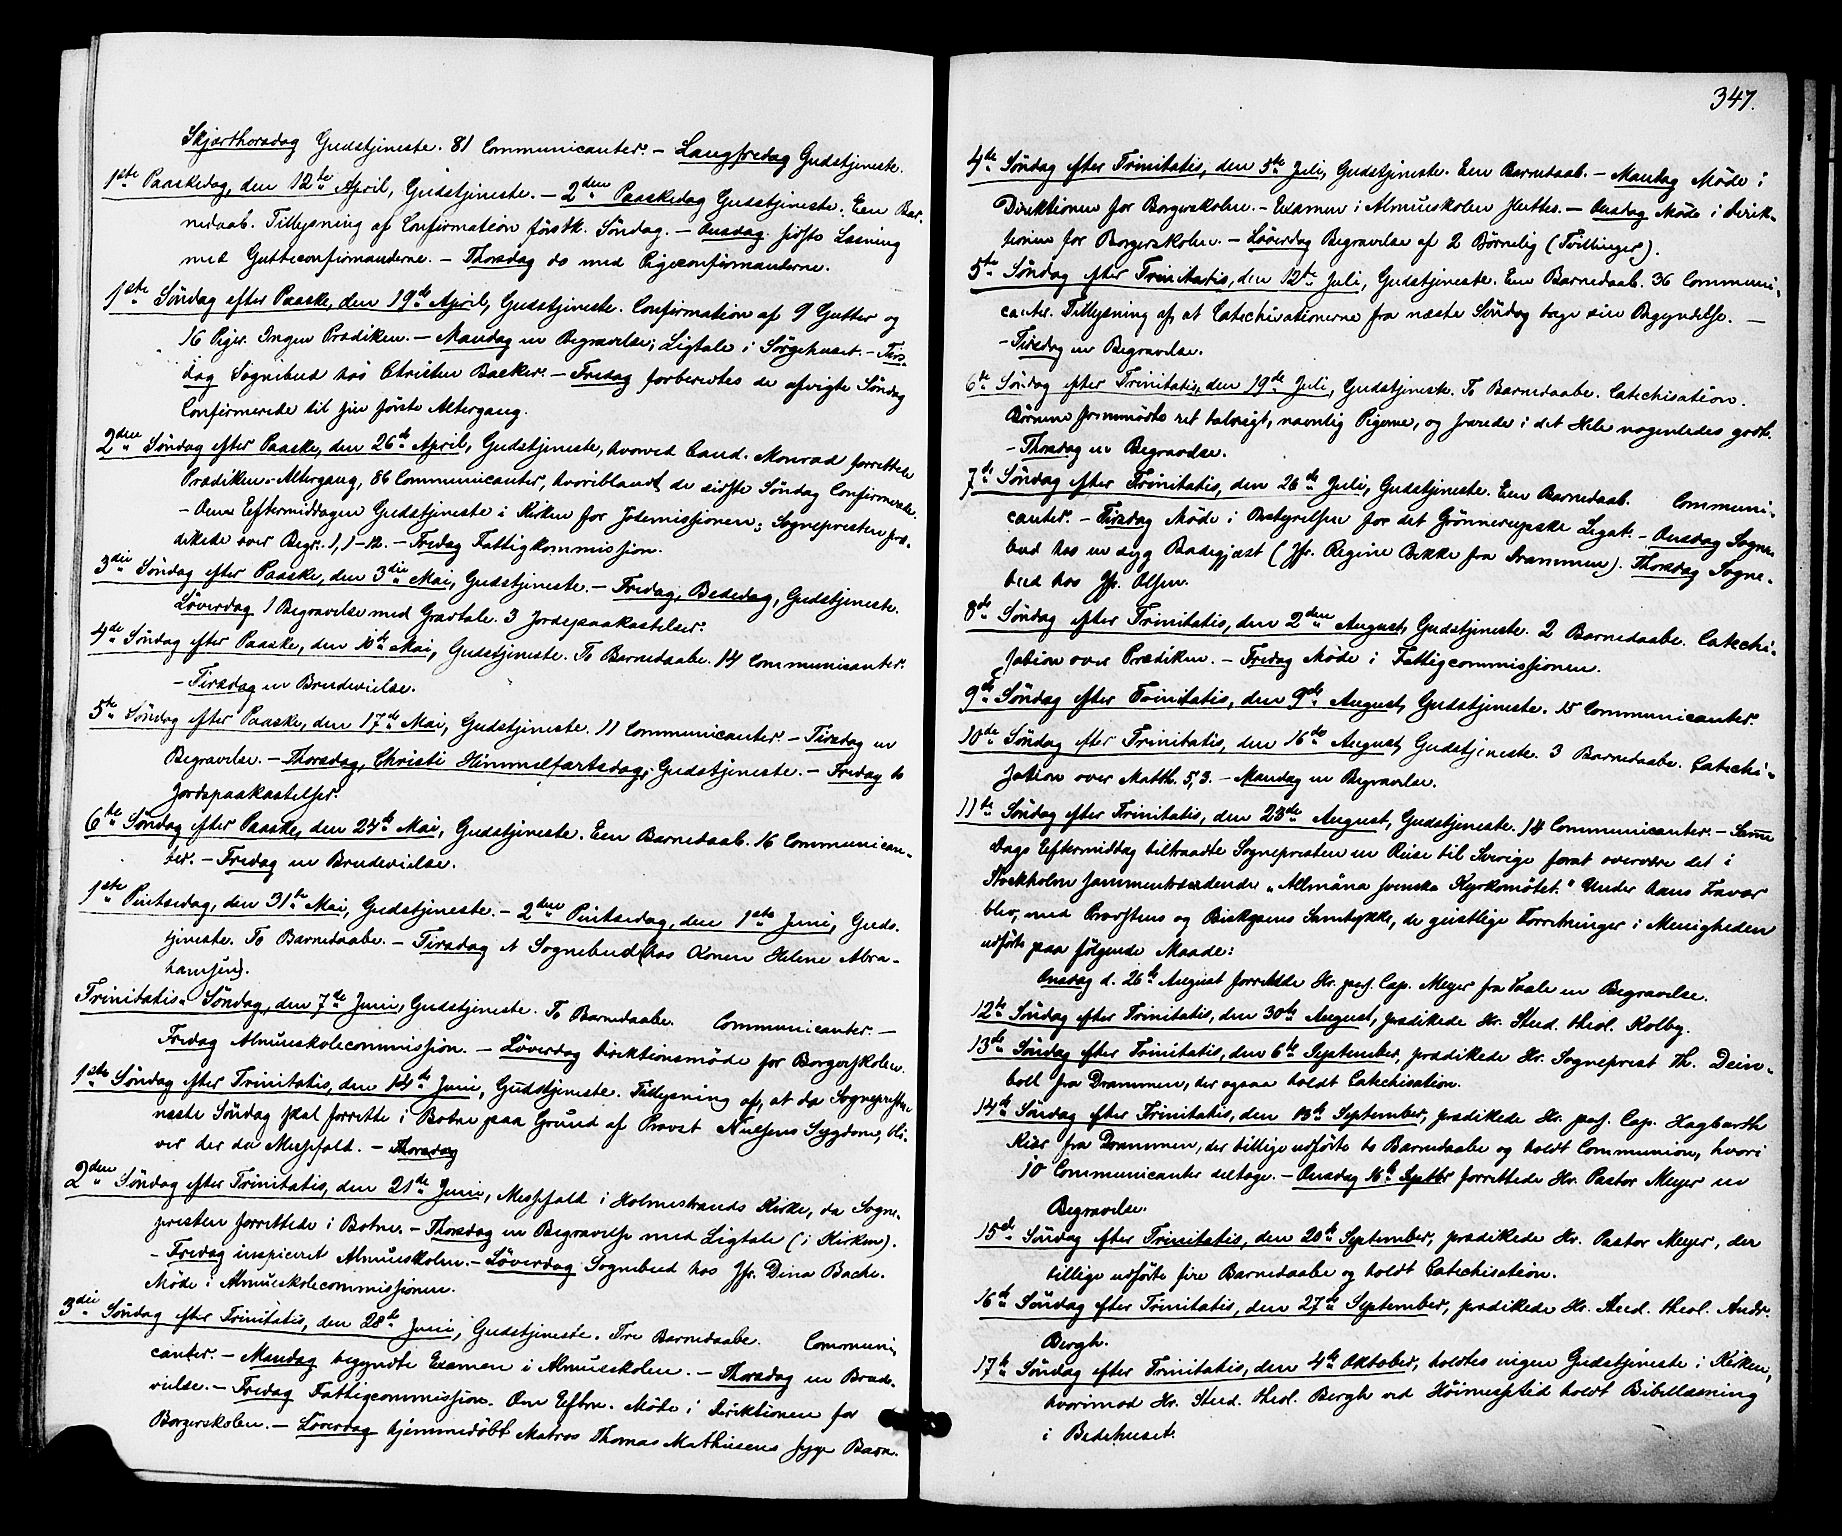 Skjærthorsdag Gudstjeneste. 81 Communicanter. – Langfredag Gudstjeneste.
1ste Paaskedag, den 12te April, Gudstjeneste. – 2den Paaskedag Gudstjeneste. Een Bar-
nedaab. Tillysning af Confirmation førstk. Søndag. – Onsdag sidste Læsning
med Gutteconfirmanderne. – Thorsdag do med Pigeconfirmanderne.
1ste Søndag efter Paaske, den 19de April, Gudstjeneste. Confirmation af 9 Gutter og
16 Piger. Ingen Prædiken. – Mandag en Begravelse; Ligtale i Sørgehuset. – Tirs-
dag Sognebud hos Christen Backer. – Fredag forberedtes de afvigte Søndag
Confirmerede til sin første Altergang.
2den Søndag efter Paaske, den 26de April, Gudstjeneste, hvorved Cand. Monrad forrettede
Prædiken. Altergang, 86 Communicanter, hvoriblandt de sidste Søndag Confirmerede.
– Om Eftermiddagen Gudstjeneste i Kirken for Jødemissionen; Sognepresten præ-
dikede over Begr. 1, 1–12. – Fredag Fattigkommission.
3die Søndag efter Paaske, den 3die Mai, Gudstjeneste. – Fredag, Bededag, Gudstjeneste.
Løverdag 1 Begravelse med Gravtale. 3 Jordspaakastelser.
4de Søndag efter Paaske, den 10de Mai, Gudstjeneste. To Barnedaabe. 14 Communicanter.
– Tirsdag en Brudevielse.
5te Søndag efter Paaske, den 17de Mai, Gudstjeneste. 11 Communicanter. – Tirsdag en
Begravelse. – Thorsdag, Christi Himmelfartsdag, Gudstjeneste. – Fredag to
Jordspaakastelser.
6te Søndag efter Paaske, den 24de Mai, Gudstjeneste. Een Barnedaab. 16 Communican-
ter. – Fredag en Brudevielse.
1ste Pintsedag, den 31te Mai, Gudstjeneste. – 2den Pintsedag, den 1ste Juni, Guds-
tjeneste. To Barnedaabe. – Tirsdag et Sognebud (hos Konen Helene Abra-
hamsen).
Trinitatis Søndag, den 7de Juni, Gudstjeneste. To Barnedaabe. Communicanter. –
Fredag Almueskolecommission. – Løverdag Direktionsmøde for Borgerskolen.
1ste Søndag efter Trinitatis, den 14de Juni, Gudstjeneste. Tillysning af, at da Sognepresten
næste Søndag skal forrette i Botne paa Grund af Provst Nielsens Sygdom, bli-
ver der da Messefald. – Thorsdag
2den Søndag efter Trinitatis, den 21de Juni, Messefald i Holmestrands Kirke, da Sogne-
presten forrettede i Botne. – Thorsdag en Begravelse med Ligtale (i Kirken).
– Fredag inspiceret Almueskolen. – Løverdag Sognebud hos Jfr. Dina Bache.
Møde i Almueskolecommissionen.
3die Søndag efter Trinitatis, den 28de Juni, Gudstjeneste. Tre Barnedaabe. Communi-
canter. – Mandag begyndte Examen i Almueskolen. – Thorsdag en Brude-
vielse. – Fredag Fattigcommission. Om Efterm. Møde i Direktionen for
Borgerskolen. – Løverdag hjemmedøbt Matros Thomas Mathisens syge Barn.
347.
4de Søndag efter Trinitatis, den 5te Juli, Gudstjeneste. Een Barnedaab. – Mandag Møde i
Direktionen for Borgerskolen. – Examen i Almueskolen sluttes. – Onsdag Møde i Direk-
tionen for Borgerskolen. – Løverdag Begravelse af 2 Børnelig (Tvillinger).
5te Søndag efter Trinitatis, den 12te Juli, Gudstjeneste. Een Barnedaab. 36 Communi-
canter. Tillysning af, at Catechisationerne fra næste Søndag tage sin Begyndelse. –
– Tirsdag en Begravelse.
6te Søndag efter Trinitatis, den 19de Juli, Gudstjeneste. To Barnedaabe. Catechisation.
Børnene fremmødte ret talrigt, navnlig Pigerne, og svarede i det Hele nogenledes godt.
– Thorsdag en Begravelse.
7de Søndag efter Trinitatis, den 26de Juli, Gudstjeneste. Een Barnedaab. Communi-
canter. – Tirsdag Møde i Bestyrelsen for det Grønnerupske Legat. – Onsdag Sogne-
bud hos en syg Badegjæst (Jfr. Regine Bekke fra Drammen). Thorsdag Sogne-
bud hos Jfr. Olsen.
8de Søndag efter Trinitatis, den 2den August, Gudstjeneste. 2 Barnedaabe. Catechi-
sation over Prædiken. – Fredag Møde i Fattigcommissionen.
9de Søndag efter Trinitatis, den 9de August, Gudstjeneste. 15 Communicanter.
10de Søndag efter Trinitatis, den 16de August, Gudstjeneste. 3 Barnedaabe. Catechi-
sation over Matth. 5, 3. – Mandag en Begravelse.
11te Søndag efter Trinitatis, den 23de August, Gudstjeneste. 14 Communicanter. – Samme
Dags Eftermiddag tiltraadte Sognepresten en Reise til Sverige forat overvære det i
Stockholm sammentrædende „Allmäna svenska Kyrkomötet." Under hans Fravær
blev, med Provstens og Biskopens Samtykke, de geistlige Forretninger i Menigheden
udførte paa følgende Maade:
Onsdag d. 26de August forrettede Hr. pers. Cap. Meyer fra Vaale en Begravelse.
12te Søndag efter Trinitatis, den 30te August, prædikede Hr. Stud. theol. Kolby.
13de Søndag efter Trinitatis, den 6te September, prædikede Hr. Sogneprest Th. Dein-
boll fra Drammen, der ogsaa holdt Catechisation.
14de Søndag efter Trinitatis, den 13de September, prædikede Hr. pers. Cap. Hagbarth
Kiær fra Drammen, der tillige udførte to Barnedaabe og holdt Communion, hvori
10 Communicanter deltoge. – Onsdag 16de Septbr forrettede Hr. Pastor Meyer en
Begravelse.
15de Søndag efter Trinitatis, den 20de September, prædikede Hr. Pastor Meyer, der
tillige udførte fire Barnedaabe og holdt Catechisation.
16de Søndag efter Trinitatis, den 27de September, prædikede Hr. Stud. theol. Andr.
Bergh.
17de Søndag efter Trinitatis, den 4de Oktober, holdtes ingen Gudstjeneste i Kirken,
hvorimod Hr. Stud. theol. Bergh ved Høimessetid holdt Bibellæsning
i Bedehuset.